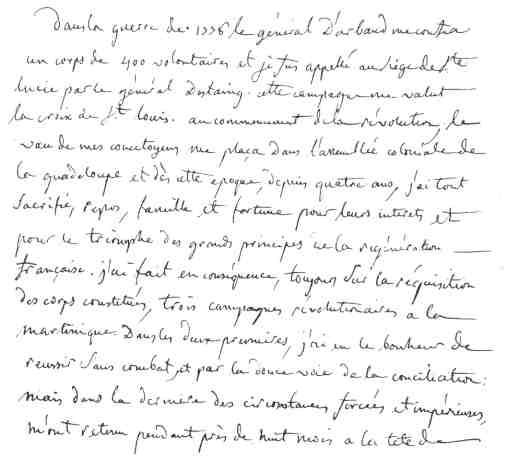 Dans la guerre de 1776 le général D'arbaud me confia
un corps de 400 volontaires et je fus appellé au siège de Ste
Lucie par le général Destaing. cette campagne me valut
la croix de St Louis. au commencement de la révolution, le
vœu de mes concitoyens me plaça dans l'assemblée coloniale de
la guadeloupe et dès cette époque, depuis quatre ans, j'ai tout
Sacrifié, repos, famille et fortune pour leurs interets et
pour le triomphe des grands principes de la régénération
française. j'ai fait en conséquence, toujours Sur la réquisition
des corps constitués, trois campagnes révolutionaires a la
martinique. Dans les deux premières, j'ai eu le bonheur de
reussir Sans combat, et par la douce voie de la conciliation:
mais dans la derniere des circonstances forcées et impérieuses,
m'ont retenu pendant près de huit mois a la tete de